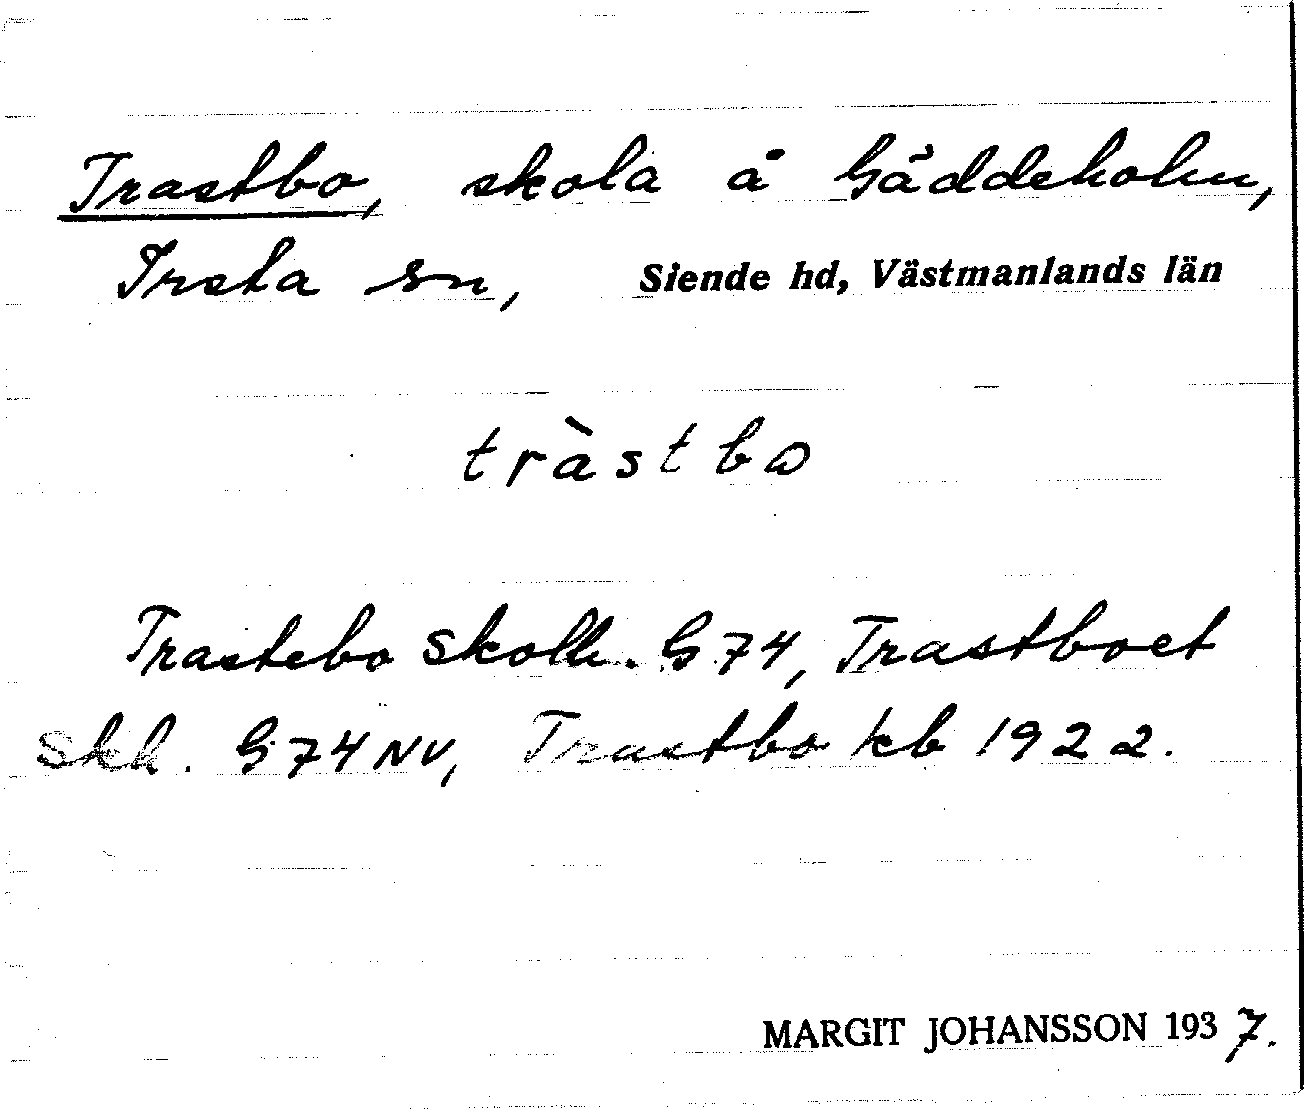 Trastbo, skola å Gäddeholm,
Irsta sn, Siende hd, Västmanlands län
tràstbω
Trastebo skolh. G 74, Trastboet
skh. G 74 NV, Trastbo kb 1922.
MARGIT JOHANSSON 1937.